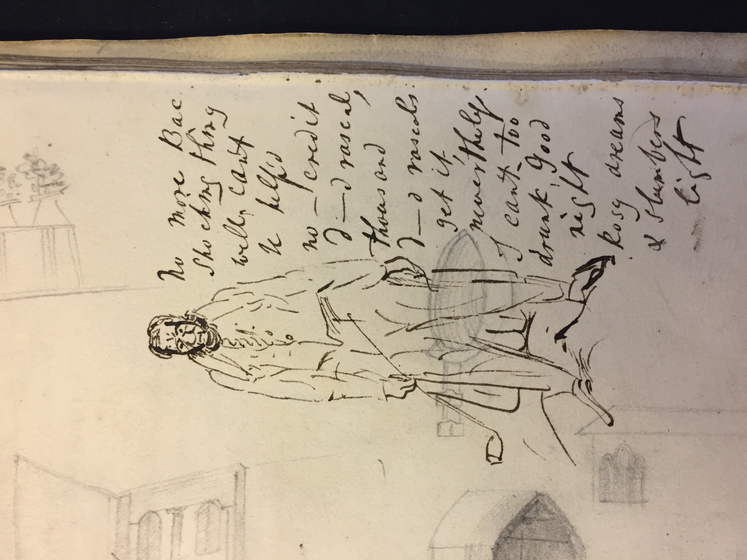 no more Bac
shocking thing
well, cant
be help'd
no — credit
d—d rascal,
thousand
d—d rascals
get it
neverthelyss.
I cant too
drunk, Good
night
Rosy dreams
& slumbers
light